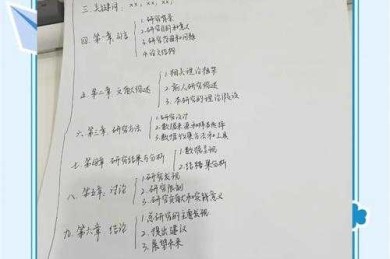 三、关键词: xx, xx, xx.
四、第一章 引言
1.研究背景
2.研究目的和意义
3.研究范围和问题
4.论文结构
五、第二章 文献综述
1.相关理论推荐
2.前人研究综述
3.本研究的理论
六、第三章. 研究方法
1.研究设计
2.数据来源和样本选择
3.数据收集方法和工具
七、第四章 研究结果与分析
1.数据呈现
2.结果分析
八、第五章. 讨论
1.研究发现
2.研究限制
3.研究贡献和实践意义
九、第六章 结论
1.总研究的主要发现
2.提出建议
3.展望未来